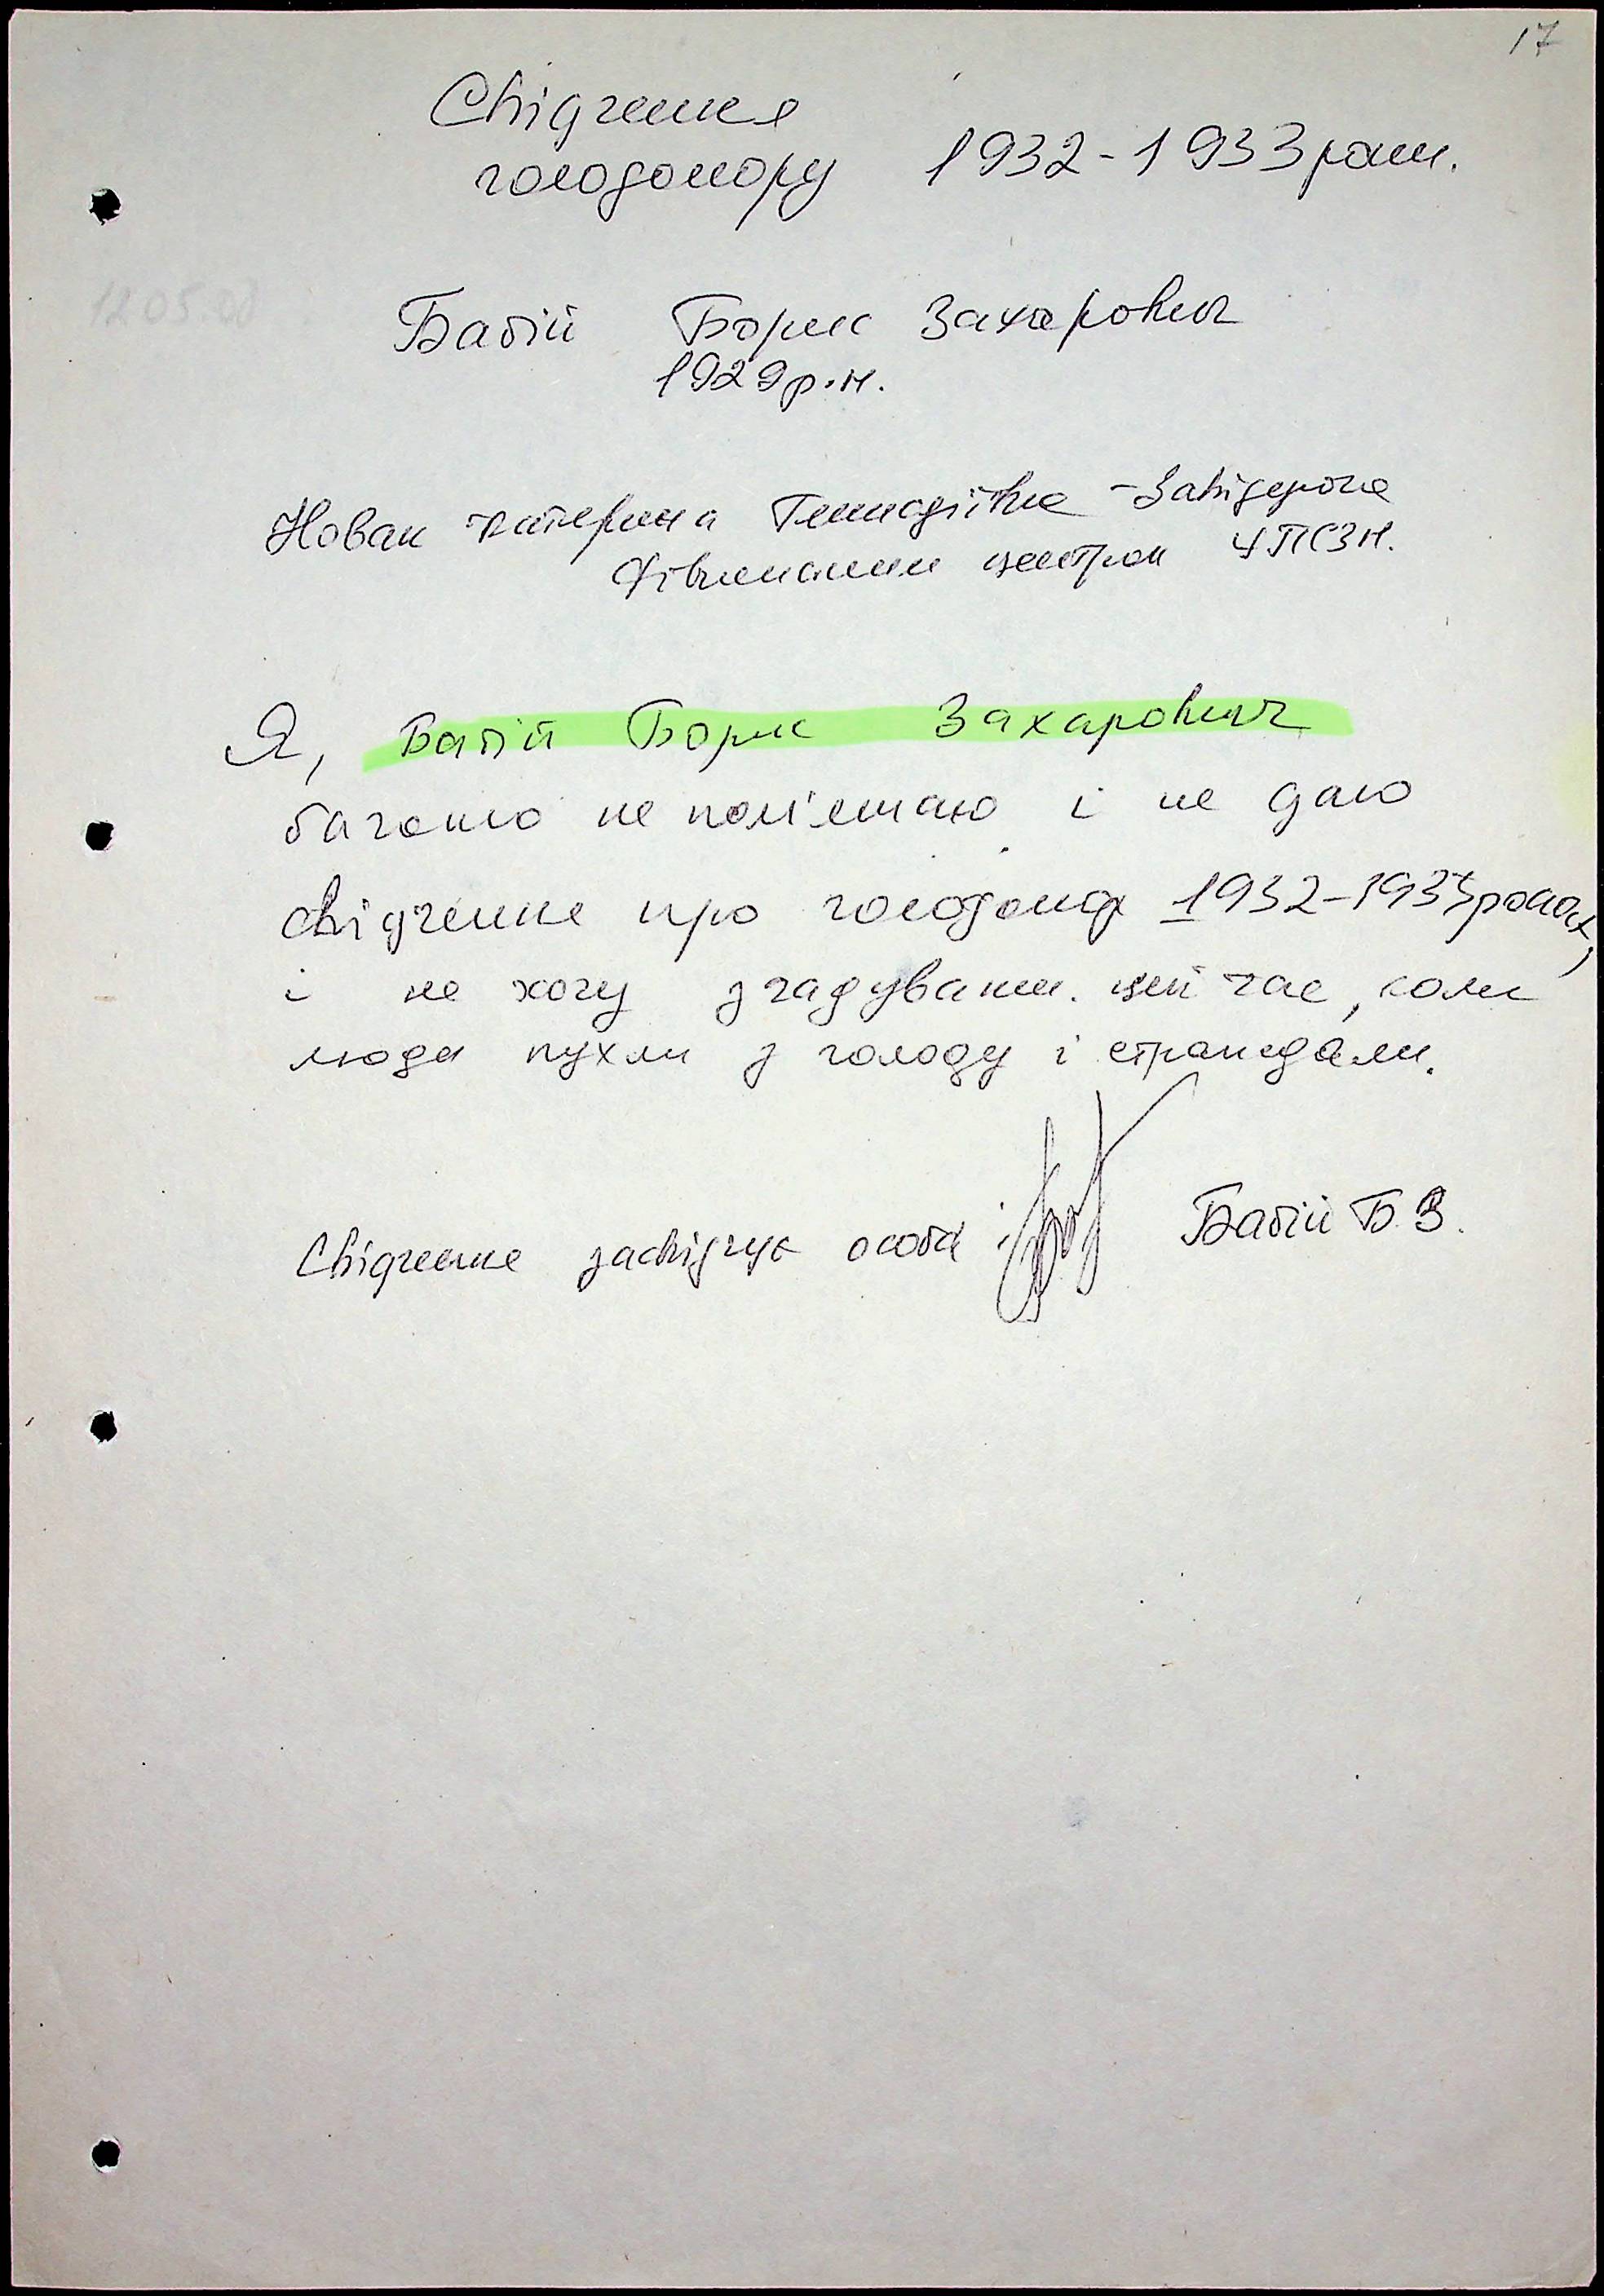 17
Свідчення
голодомору 1932-1933 роки.
12.05.08
Бабій Борис Захарович
1929 р.н.
Новак Катерина Геннадіївна - Завідуюча
Фізичними центром ЧПСЗН.
Я, Бабій Борис Захарович
багато не пом'ятаю і не даю
свідчення про голодомор 1932-1933 роках,
і не хочу згадувати цей час, коли
люди пухли з голоду і страждали.
Свідчення засвідчує особа Бабій Б.З.